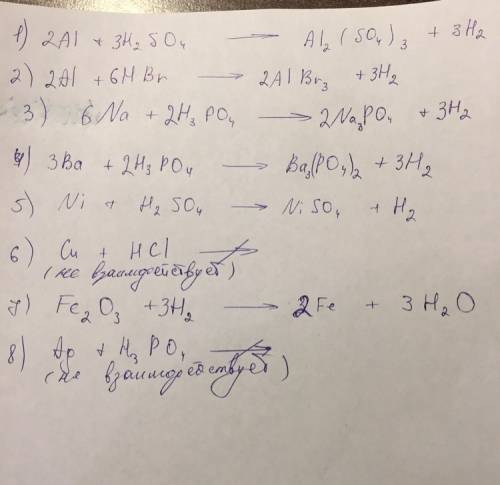 1) 2Al + 3H₂SO₄ → Al₂(SO₄)₃ + 3H₂
2) 2Al + 6HBr → 2AlBr₃ + 3H₂
3) 6Na + 2H₃PO₄ → 2Na₃PO₄ + 3H₂
4) 3Ba + 2H₃PO₄ → Ba₃(PO₄)₂ + 3H₂
5) Ni + H₂SO₄ → NiSO₄ + H₂
6) Cu + HCl ↛
(не взаимодействует)
7) Fe₂O₃ + 3H₂ → 2Fe + 3H₂O
8) Ag + H₃PO₄ ↛
(не взаимодействует)